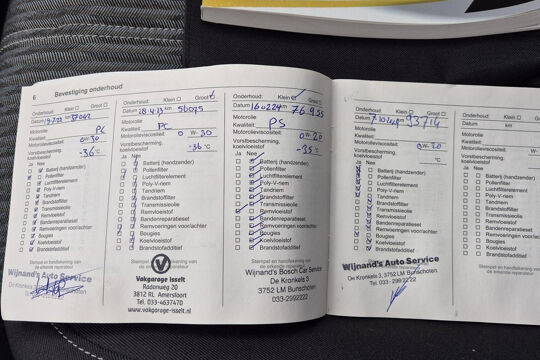 6 Bevestiging onderhoud
Onderhoud: Klein Groot
Datum km
Motorolie
Kwaliteit: PC
Motorolieviscositeit: W-
Vorstbescherming, koelvloeistof -36 °C
Ja Nee
Batterij (handzender)
Pollenfilter
Luchtfilterelement
Poly-V-riem
Tandriem
Brandstoffilter
Transmissieolie
Remvloeistof
Bandenreparatieset
Remvoeringen voor/achter
Bougies
Koelvloeistof
Brandstofadditief
Stempel en handtekening van de erkende reparateur
Wijnand's Auto Service
De Kronkels
Onderhoud: Klein Groot
Datum 18.4.23 km 56025
Motorolie
Kwaliteit: PC
Motorolieviscositeit: 0 W- 30
Vorstbescherming, koelvloeistof -36 °C
Ja Nee
Batterij (handzender)
Pollenfilter
Luchtfilterelement
Poly-V-riem
Tandriem
Brandstoffilter
Transmissieolie
Remvloeistof
Bandenreparatieset
Remvoeringen voor/achter
Bougies
Koelvloeistof
Brandstofadditief
Vakgarage Isselt
Radonweg 20
3812 RL Amersfoort
Tel. 033-4637470
www.vakgarage-isselt.nl
Onderhoud: Klein Groot
Datum 160224 km 76.955
Motorolie
Kwaliteit: PS
Motorolieviscositeit: 0 W- 20
Vorstbescherming, koelvloeistof -35 °C
Ja Nee
Batterij (handzender)
Pollenfilter
Luchtfilterelement
Poly-V-riem
Tandriem
Brandstoffilter
Transmissieolie
Remvloeistof
Bandenreparatieset
Remvoeringen voor/achter
Bougies
Koelvloeistof
Brandstofadditief
Stempel en handtekening van de erkende reparateur
Wijnand's Bosch Car Service
De Kronkels 3
3752 LM Bunschoten
033-2992222
Onderhoud: Klein Groot
Datum km 93714
Motorolie
Kwaliteit:
Motorolieviscositeit: 0 W- 20
Vorstbescherming, koelvloeistof °C
Ja Nee
Batterij (handzender)
Pollenfilter
Luchtfilterelement
Poly-V-riem
Tandriem
Brandstoffilter
Transmissieolie
Remvloeistof
Bandenreparatieset
Remvoeringen voor/achter
Bougies
Koelvloeistof
Brandstofadditief
Stempel en handtekening van de erkende reparateur
Wijnand's Auto Service
De Kronkels 3, 3752 LM Bunschoten
Tel. 033-299 22 22
Onderhoud: Klein
Datum km
Motorolie
Kwaliteit:
Motorolieviscositeit:
Vorstbescherming, koelvloeistof
Ja Nee
Batterij
Pollenfilter
Poly-V-riem
Tandriem
Brandstoffilter
Transmissieolie
Remvloeistof
Bougies
Koelvloeistof
Brandstofadditief